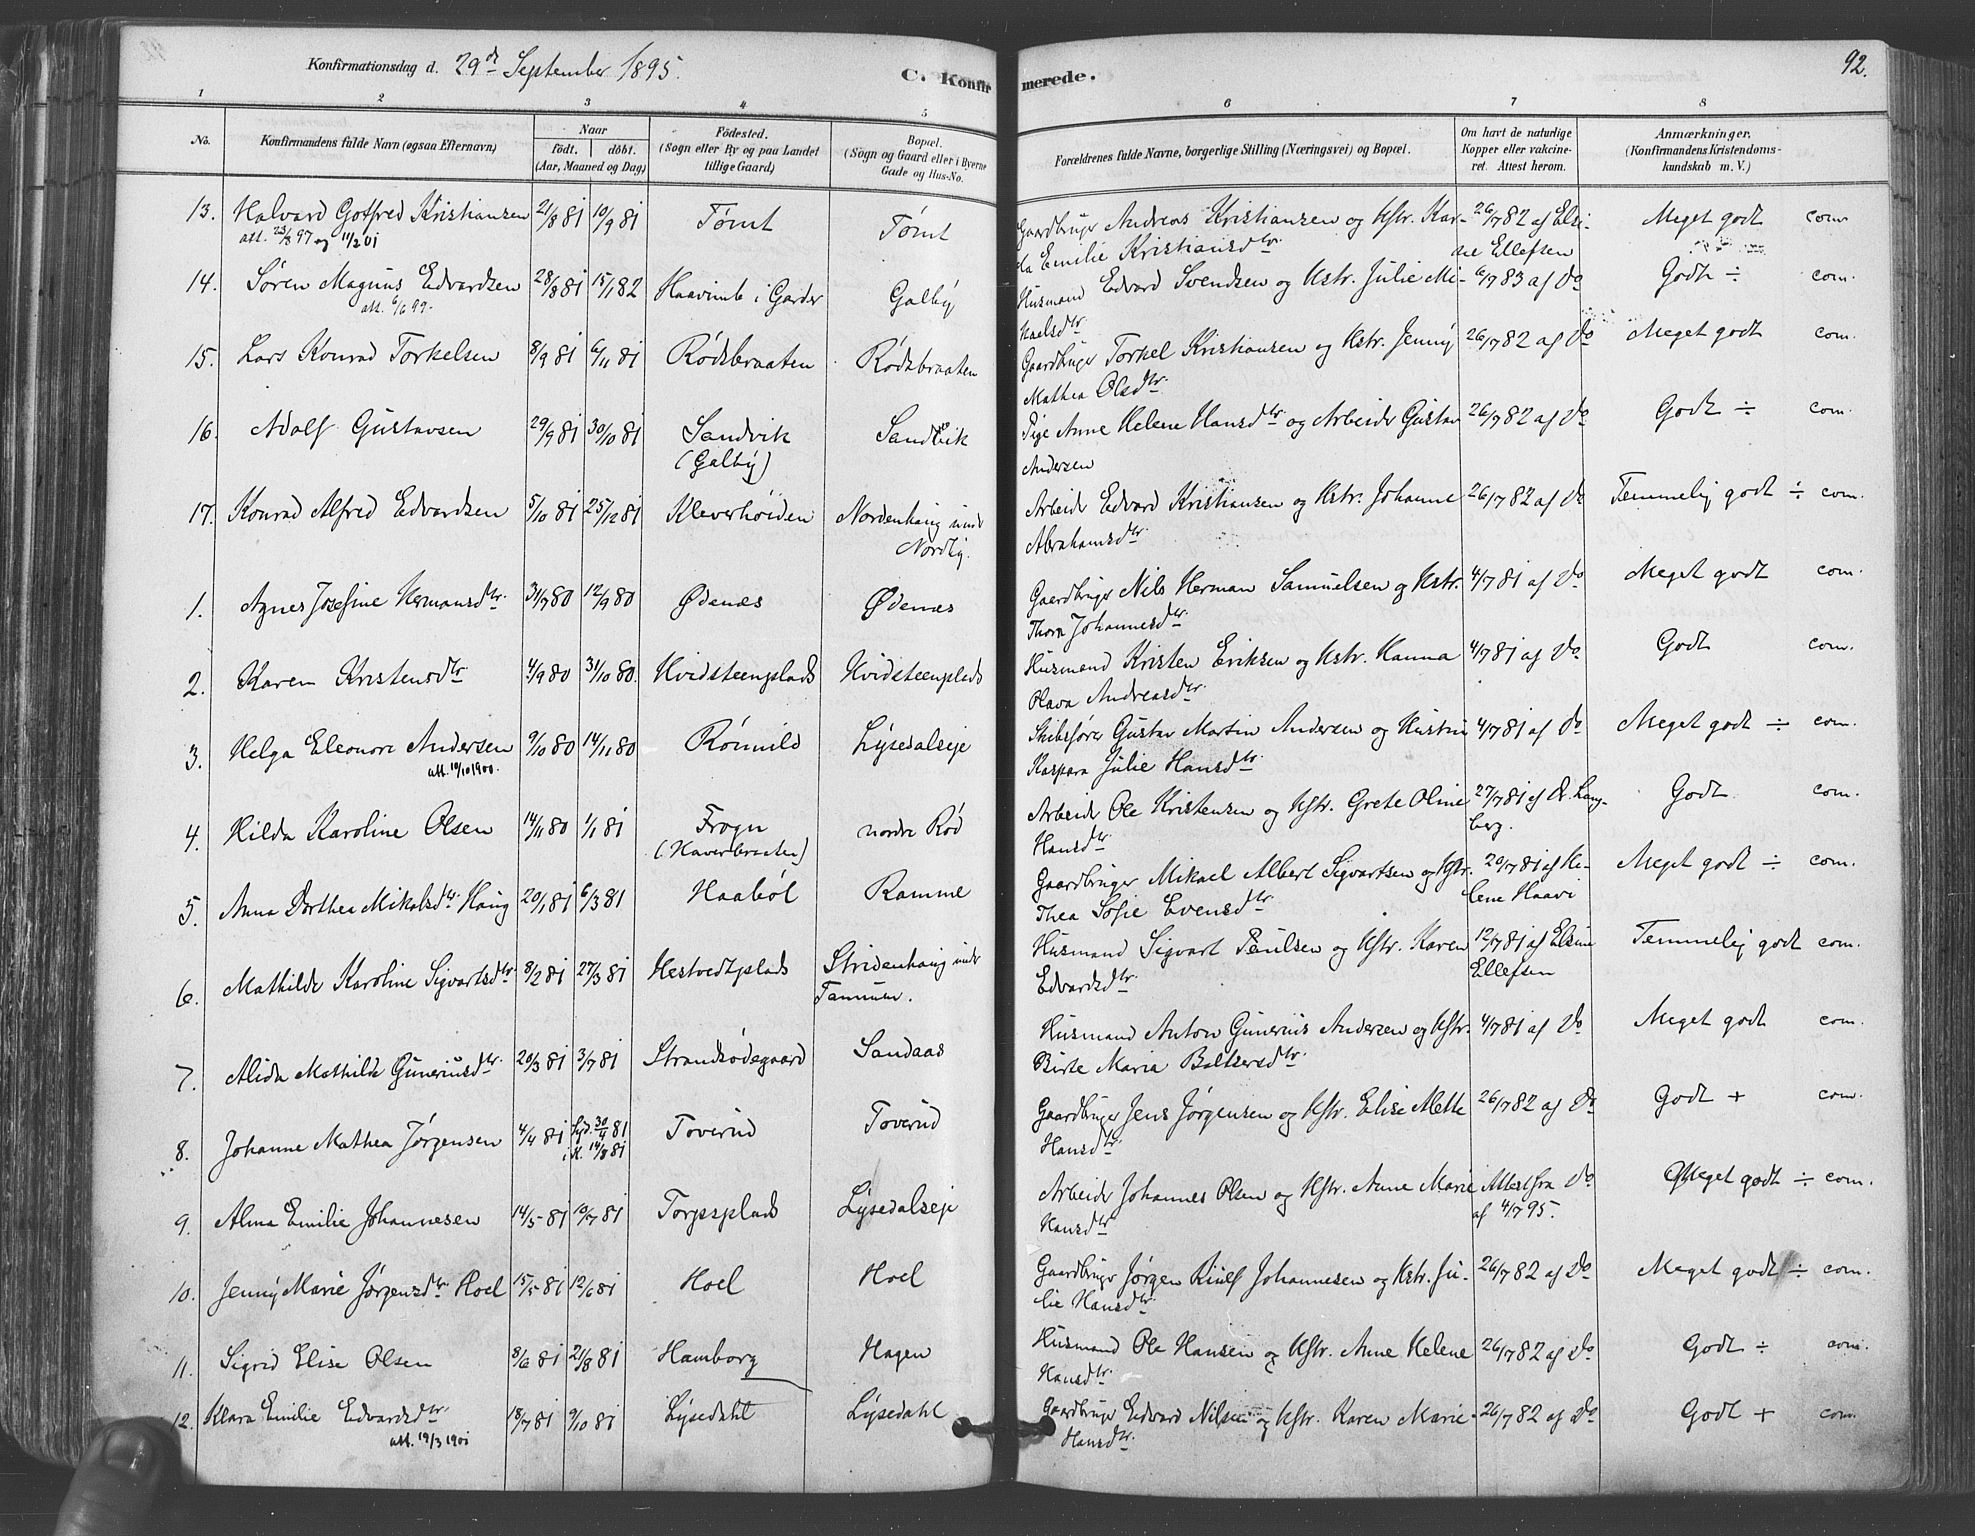 Konfirmationsdag d. 29de September 1895.
C. Konfirmerede.
92.
1 2 3 4 5 6 7 8
No. Konfirmandens fulde Navn (ogsaa Efternavn) Naar födt. döbt. (Aar, Maaned og Dag) Födested. (Sogn eller By og paa Landet tillige Gaard) Bopæl. (Sogn og Gaard eller i Byerne Gade og Hus-No. Forældrenes fulde Navne, borgerlige Stilling (Næringsvei) og Bopæl. Om havt de naturlige Kopper eller vakcineret. Attest herom. Anmærkninger. (Konfirmandens Kristendomskundskab m. V.)
13. Halvard Gotfred Kristiansen 21/8 81 10/9 81 Tømt Tømt Gaardbruger Andreas Kristiansen og Hstr. Kar- 26/7 82 af Elsi- Meget godt com.
att. 23/8 97 og 11/2 01 la Emilie Kristiansdtr. ne Ellefsen
14. Søren Magnus Edvardsen 28/8 81 15/1 82 Haavimb i Garder Galby Husmand Edvard Svendsen og Hstr. Julie Mi- 6/7 83 af Do Godt ÷ com.
att. 6/6 99. kaelsdtr
15. Lars Konrad Torkelsen 8/9 81 6/11 81 Rødsbraaten Rødsbraaten Gaardbruger Torkel Kristiansen og Hstr. Jenny 26/7 82 af Do Meget godt com.
Mathea Olsdtr.
16. Adolf Gustavsen 29/9 81 30/10 81 Sandvik Sandvik Pige Anne Helene Hansdtr og Arbeider Gustav 26/7 82 af Do Godt ÷ com.
(Galby) Andersen
17. Konrad Alfred Edvardsen 5/10 81 25/12 81 Kleverhøiden Nordenhaug under Arbeider Edvard Kristiansen og Hstr. Johanne 26/7 82 af Do Temmelig godt ÷ com.
Nordby. Abrahamsdtr
1. Agnes Josefine Hermansdtr. 31/7 80 12/9 80 Ødenæs Ødenæs Gaardbruger Nils Herman Samuelsen og Hstr. 4/7 81 af Do Meget godt com.
Thora Johannesdtr.
2. Karen Kristensdtr 4/9 80 31/10 80. Hvidsteenplads Hvidsteenplads Husmand Kristen Eriksen og Hstr. Hanna 4/7 81 af Do. Godt com.
Olava Andreasdtr.
3. Helga Eleonore Andersen 9/10 80 14/11 80 Rømuld Lysedalseje Skibsfører Gustav Martin Andersen og Hustru 4/7 81 af Do Meget godt ÷ com.
att. 10/10 1900. Kaspara Julie Hansdtr.
4. Hilda Karoline Olsen 14/11 80 1/1 81 Frogn nordre Rød Arbeider Ole Kristensen og Hstr. Grete Oline 27/7 81 af Dr. Lang- Godt com.
(Haverbraaten) Hansdtr berg.
5. Anna Dorthea Mikalsdtr. Haug 20/1 81 6/3 81 Haabøl Ramme Gaardbruger Mikael Albert Sigvartsen og Hstr. 20/7 81 af He- Meget godt ÷ com.
Thea Sofie Evensdtr. lene Haavi
6. Mathilde Karoline Sigvartsdtr 8/2 81 27/3 81 Hestvedtplads Stridenhaug under Husmand Sigvart Paulsen og Hstr. Karen 12/7 81 af Elsine Temmelig godt com.
Edvardsdtr. Ellefsen
7. Alida Mathilde Guneriusdtr. 20/3 81 3/7 81 Strandsødegaard Sandaas Husmand Anton Gunerius Andersen og Hstr. 4/7 81 af Do Meget godt com.
Birte Maria Baltsersdtr.
8. Johanne Mathea Jørgensen 4/4 81 30/4 81 Toverud Toverud Gaardbruger Jens Jørgensen og Hstr. Elise Mette 26/7 82 af Do Godt + com.
i K. 14/8 81 Hansdtr.
9. Alma Emilie Johannesen 14/5 81 10/7 81 Torpsplads Lysedalseje Arbeider Johannes Olsen og Hstr. Anne Marie Attest fra Do Meget godt ÷ com.
Hansdtr af 4/7 95.
10. Jenny Marie Jørgensdtr. Hoel 15/5 81 12/6 81 Hoel Hoel Gaardbruger Jørgen Riulf Johannesen og Hstr. Ju- 26/7 82 af Do Meget godt ÷ com.
lie Hansdtr.
11. Sigrid Elise Olsen 8/6 81 21/8 81 Hamborg Hagen Husmand Ole Hansen og Hstr. Anne Helene 26/7 82 af Do Godt ÷ com.
Hansdtr.
12. Klara Emilie Edvardsdtr. 18/7 81 9/10 81 Lysedahl Lysedahl Gaardbruger Edvard Nilsen og Hstr. Karen Marie 26/7 82 af Do Godt + com.
att. 19/3 1901 Hansdtr.